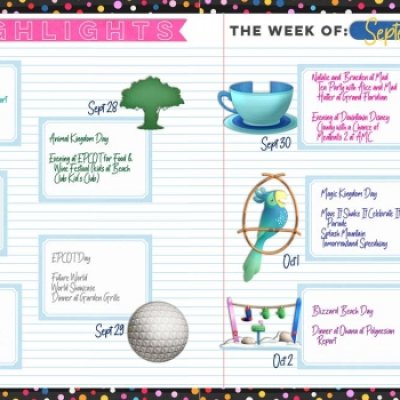 GHLIGHTS
THE WEEK OF: Septe
Sept 28
Animal Kingdom Day
Evening at EPCOT for Food &
Wine Festival (kids at Beach
Club Kid's Club)
EPCOT Day
Future World
World Showcase
Dinner at Garden Grille
Sept 29
Natalie and Braeden at Mad
Tea Party with Alice and Mad
Hatter at Grand Floridian
Evening at Downtown Disney
Cloudy with a Chance of
Meatballs 2 at AMC
Sept 30
Magic Kingdom Day
Move It! Shake It! Celebrate It!
Parade
Splash Mountain
Tomorrowland Speedway
Oct 1
Blizzard Beach Day
Dinner at Ohana at Polynesian
Resort
Oct 2